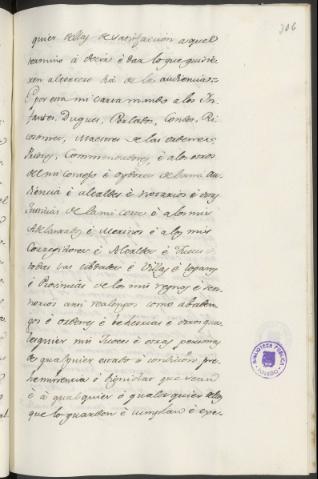 306
quier dellas de satisfacion aquel
termino á decir é dar lo que quisie-
ren al tercero dia de la audiencia:
E por esta mi carta mando a los In-
fantes, Duques, Perlados, Condes, Ri-
cosomes, Maestres de las ordenes,
Priores, Commendadores, é a los otros
del mi consejo é oydores de la mi Au-
diencia é alcaldes é notarios é otras
Justicias de la mi corte é a los mis
Adelantados é Merinos é a los mis
Corregidores é Alcaldes é Jueces
todas las cibdades é Villas é logares
é Provincias de los mis regnos é se-
ñorios ansi realengos como abaden-
gos é ordenes é behetrias é otros qua-
lesquier mis Jueces é otras personas
de qualquier estado ó condicion, pre-
heminencia ó dignidad que sean
é á qualquier ó qualesquier dellos
que lo guarden é cumplan é exe-
BIBLIOTECA PUBLICA
TOLEDO